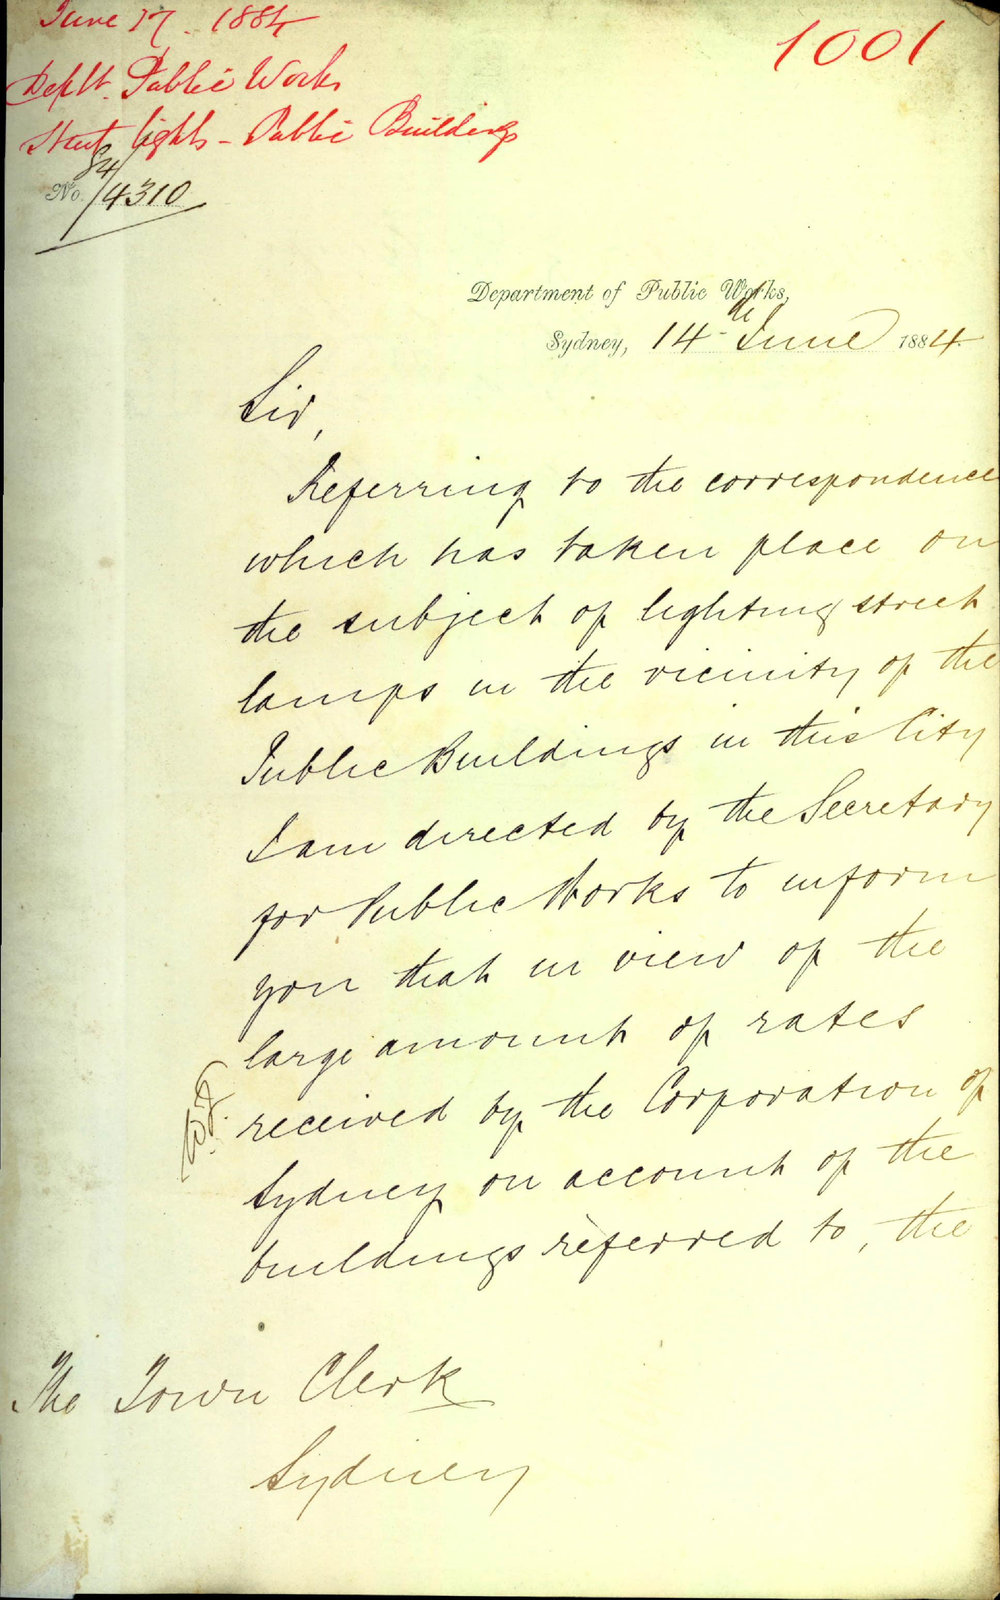 June 17. 1884
1001
Deptt. Public Works
Street lights - Public Buildings
No. 84/4310
Department of Public Works,
Sydney, 14th June 1884.
Sir,
Referring to the correspondence
which has taken place on
the subject of lighting street
lamps in the vicinity of the
Public Buildings in this City
I am directed by the Secretary
for Public Works to inform
you that in view of the
large amount of rates
received by the Corporation of
Sydney on account of the
buildings referred to, the
The Town Clerk
Sydney